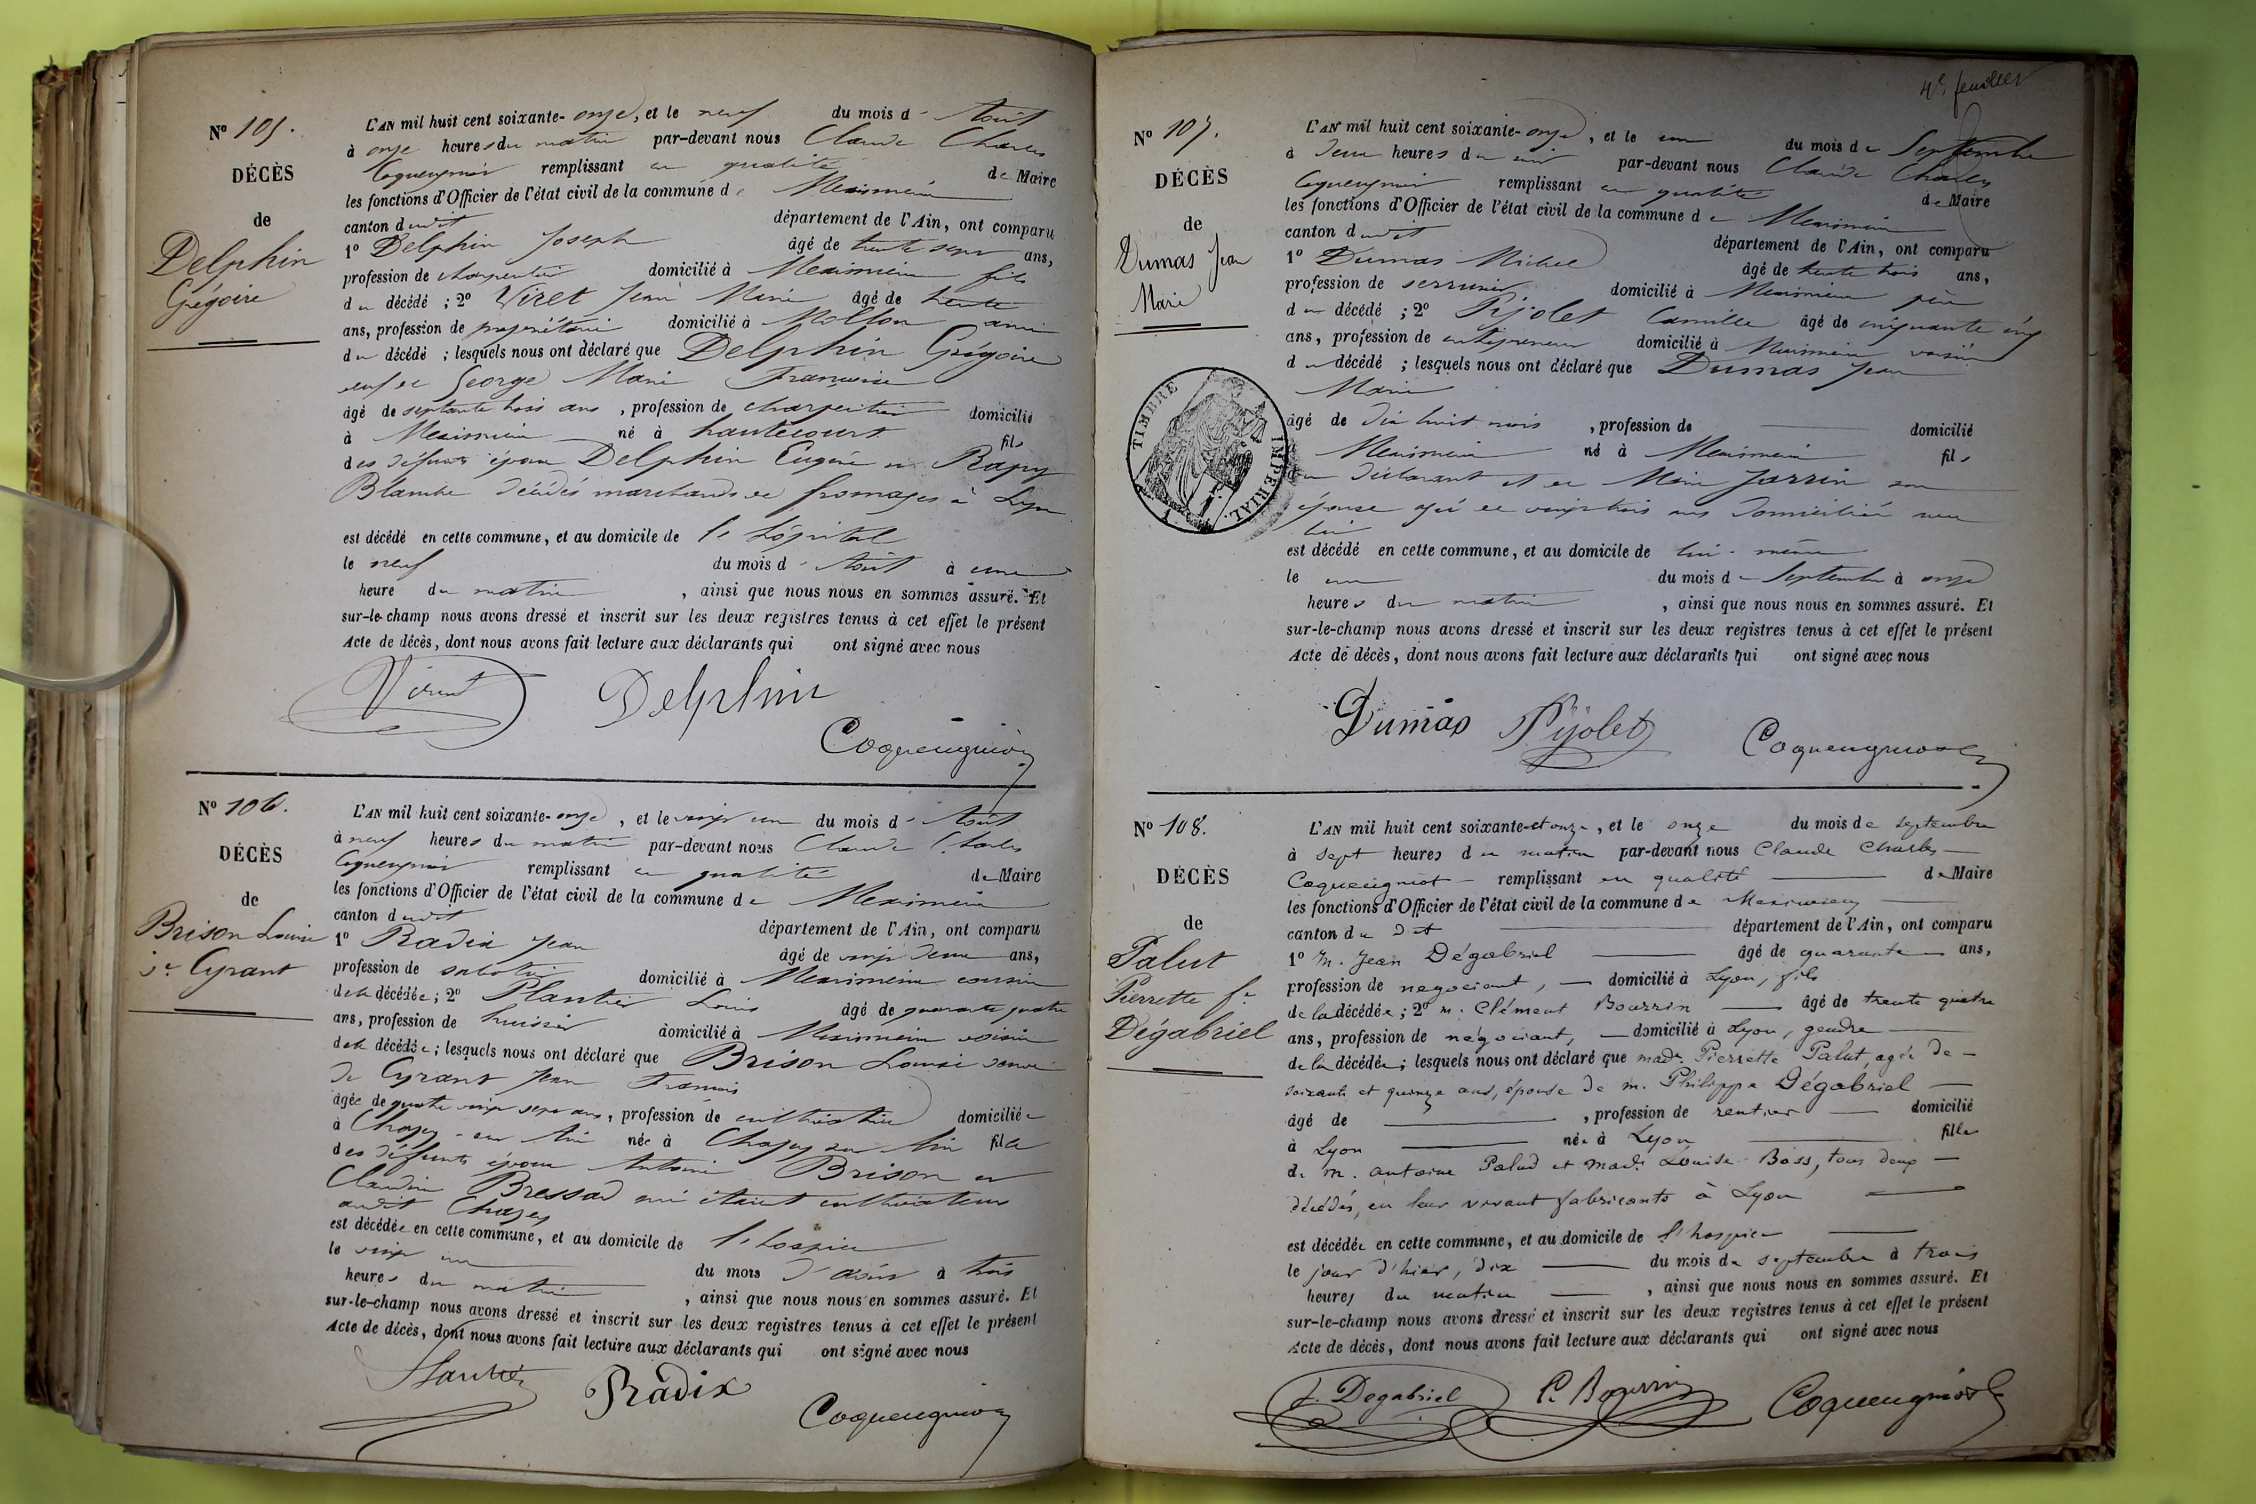 Nº 105.
DÉCÈS
de
Delphin
Grégoire
L'AN mil huit cent soixante-onze, et le neuf du mois d' Août
à onze heures du matin par-devant nous Claude Charles
Coqueugniot remplissant en qualité de Maire
les fonctions d'Officier de l'état civil de la commune de Meximieux
canton dudit département de l'Ain, ont comparu
1º Delphin Joseph âgé de trente sept ans,
profession de charpentier domicilié à Meximieux fils
du décédé ; 2º Viret Jean Marie âgé de trente
ans, profession de propriétaire domicilié à Mollon ami
du décédé ; lesquels nous ont déclaré que Delphin Grégoire
veuf de George Marie Françoise
âgé de septante trois ans, profession de charpentier domicilié
à Meximieux né à hautecourt fils
des défunts époux Delphin Eugène et Rapy
Blanche décédés marchands de fromages à Lyon
est décédé en cette commune, et au domicile de l'hôpital
le neuf du mois d' Août à une
heure du matin, ainsi que nous nous en sommes assuré. Et
sur-le-champ nous avons dressé et inscrit sur les deux registres tenus à cet effet le présent
Acte de décès, dont nous avons fait lecture aux déclarants qui ont signé avec nous
Viret Delphin
Coqueugniot
Nº 106.
DÉCÈS
de
Brison Louise
Ve Cyrant
L'AN mil huit cent soixante-onze, et le vingt un du mois d' Août
à neuf heures du matin par-devant nous Claude Charles
Coqueugniot remplissant en qualité de Maire
les fonctions d'Officier de l'état civil de la commune de Meximieux
canton dudit département de l'Ain, ont comparu
1º Radix Jean âgé de vingt deux ans,
profession de sabotier domicilié à Meximieux cousin
de la décédée ; 2º Plantier Louis âgé de quarante quatre
ans, profession de huissier domicilié à Meximieux voisin
de la décédée ; lesquels nous ont déclaré que Brison Louise veuve
de Cyrant Jean François
âgée de quatre vingt sept ans, profession de cultivatrice domiciliée
à Chazey-sur Ain née à Chazey sur Ain fille
des défunts époux Antoine Brison et
Claudine Bressad qui étaient cultivateurs
audit Chazey
est décédée en cette commune, et au domicile de l'hospice
le vingt un du mois d'août à trois
heures du matin, ainsi que nous nous en sommes assuré. Et
sur-le-champ nous avons dressé et inscrit sur les deux registres tenus à cet effet le présent
Acte de décès, dont nous avons fait lecture aux déclarants qui ont signé avec nous
Plantier Radix
Coqueugniot
4e feuillet
Nº 107.
DÉCÈS
de
Dumas Jean
Marie
TIMBRE IMPÉRIAL.
L'AN mil huit cent soixante-onze, et le un du mois de Septembre
à deux heures du soir par-devant nous Claude Charles
Coqueugniot remplissant en qualité de Maire
les fonctions d'Officier de l'état civil de la commune de Meximieux
canton dudit département de l'Ain, ont comparu
1º Dumas Michel âgé de trente trois ans,
profession de serrurier domicilié à Meximieux père
du décédé ; 2º Pijolet Camille âgé de cinquante cinq
ans, profession de entrepreneur domicilié à Meximieux voisin
du décédé ; lesquels nous ont déclaré que Dumas Jean
Marie
âgé de dix huit mois, profession de domicilié
Meximieux né à Meximieux fils
du déclarant et de Marie Jarrin son
épouse agée de vingt trois ans domiciliée avec
lui
est décédé en cette commune, et au domicile de lui-même
le un du mois de Septembre à onze
heures du matin, ainsi que nous nous en sommes assuré. Et
sur-le-champ nous avons dressé et inscrit sur les deux registres tenus à cet effet le présent
Acte de décès, dont nous avons fait lecture aux déclarants qui ont signé avec nous
Dumas Pijolet Coqueugniot
Nº 108.
DÉCÈS
de
Palut
Pierrette fe
Dégabriel
L'AN mil huit cent soixante-et onze, et le onze du mois de septembre
à sept heures du matin par-devant nous Claude Charles
Coqueugniot remplissant en qualité de Maire
les fonctions d'Officier de l'état civil de la commune de Meximieux
canton du dit département de l'Ain, ont comparu
1º M. Jean Dégabriel âgé de quarante ans,
profession de negociant, domicilié à Lyon, fils
de la décédée ; 2º m. Clément Bourrin âgé de trente quatre
ans, profession de négociant, domicilié à Lyon, gendre
de la décédée ; lesquels nous ont déclaré que made Pierrette Palut, agée de
soixante et quinze ans, épouse de m. Philippe Dégabriel
âgé de , profession de rentier domicilié
à Lyon née à Lyon fille
de m. antoine Palud et made Louise Boss, tous deux
décédés, en leur vivant fabricants à Lyon
est décédée en cette commune, et au domicile de l'hospice
le jour d'hier, dix du mois de septembre à trois
heures du matin, ainsi que nous nous en sommes assuré. Et
sur-le-champ nous avons dressé et inscrit sur les deux registres tenus à cet effet le présent
Acte de décès, dont nous avons fait lecture aux déclarants qui ont signé avec nous
J. Degabriel C. Bourrin Coqueugniot